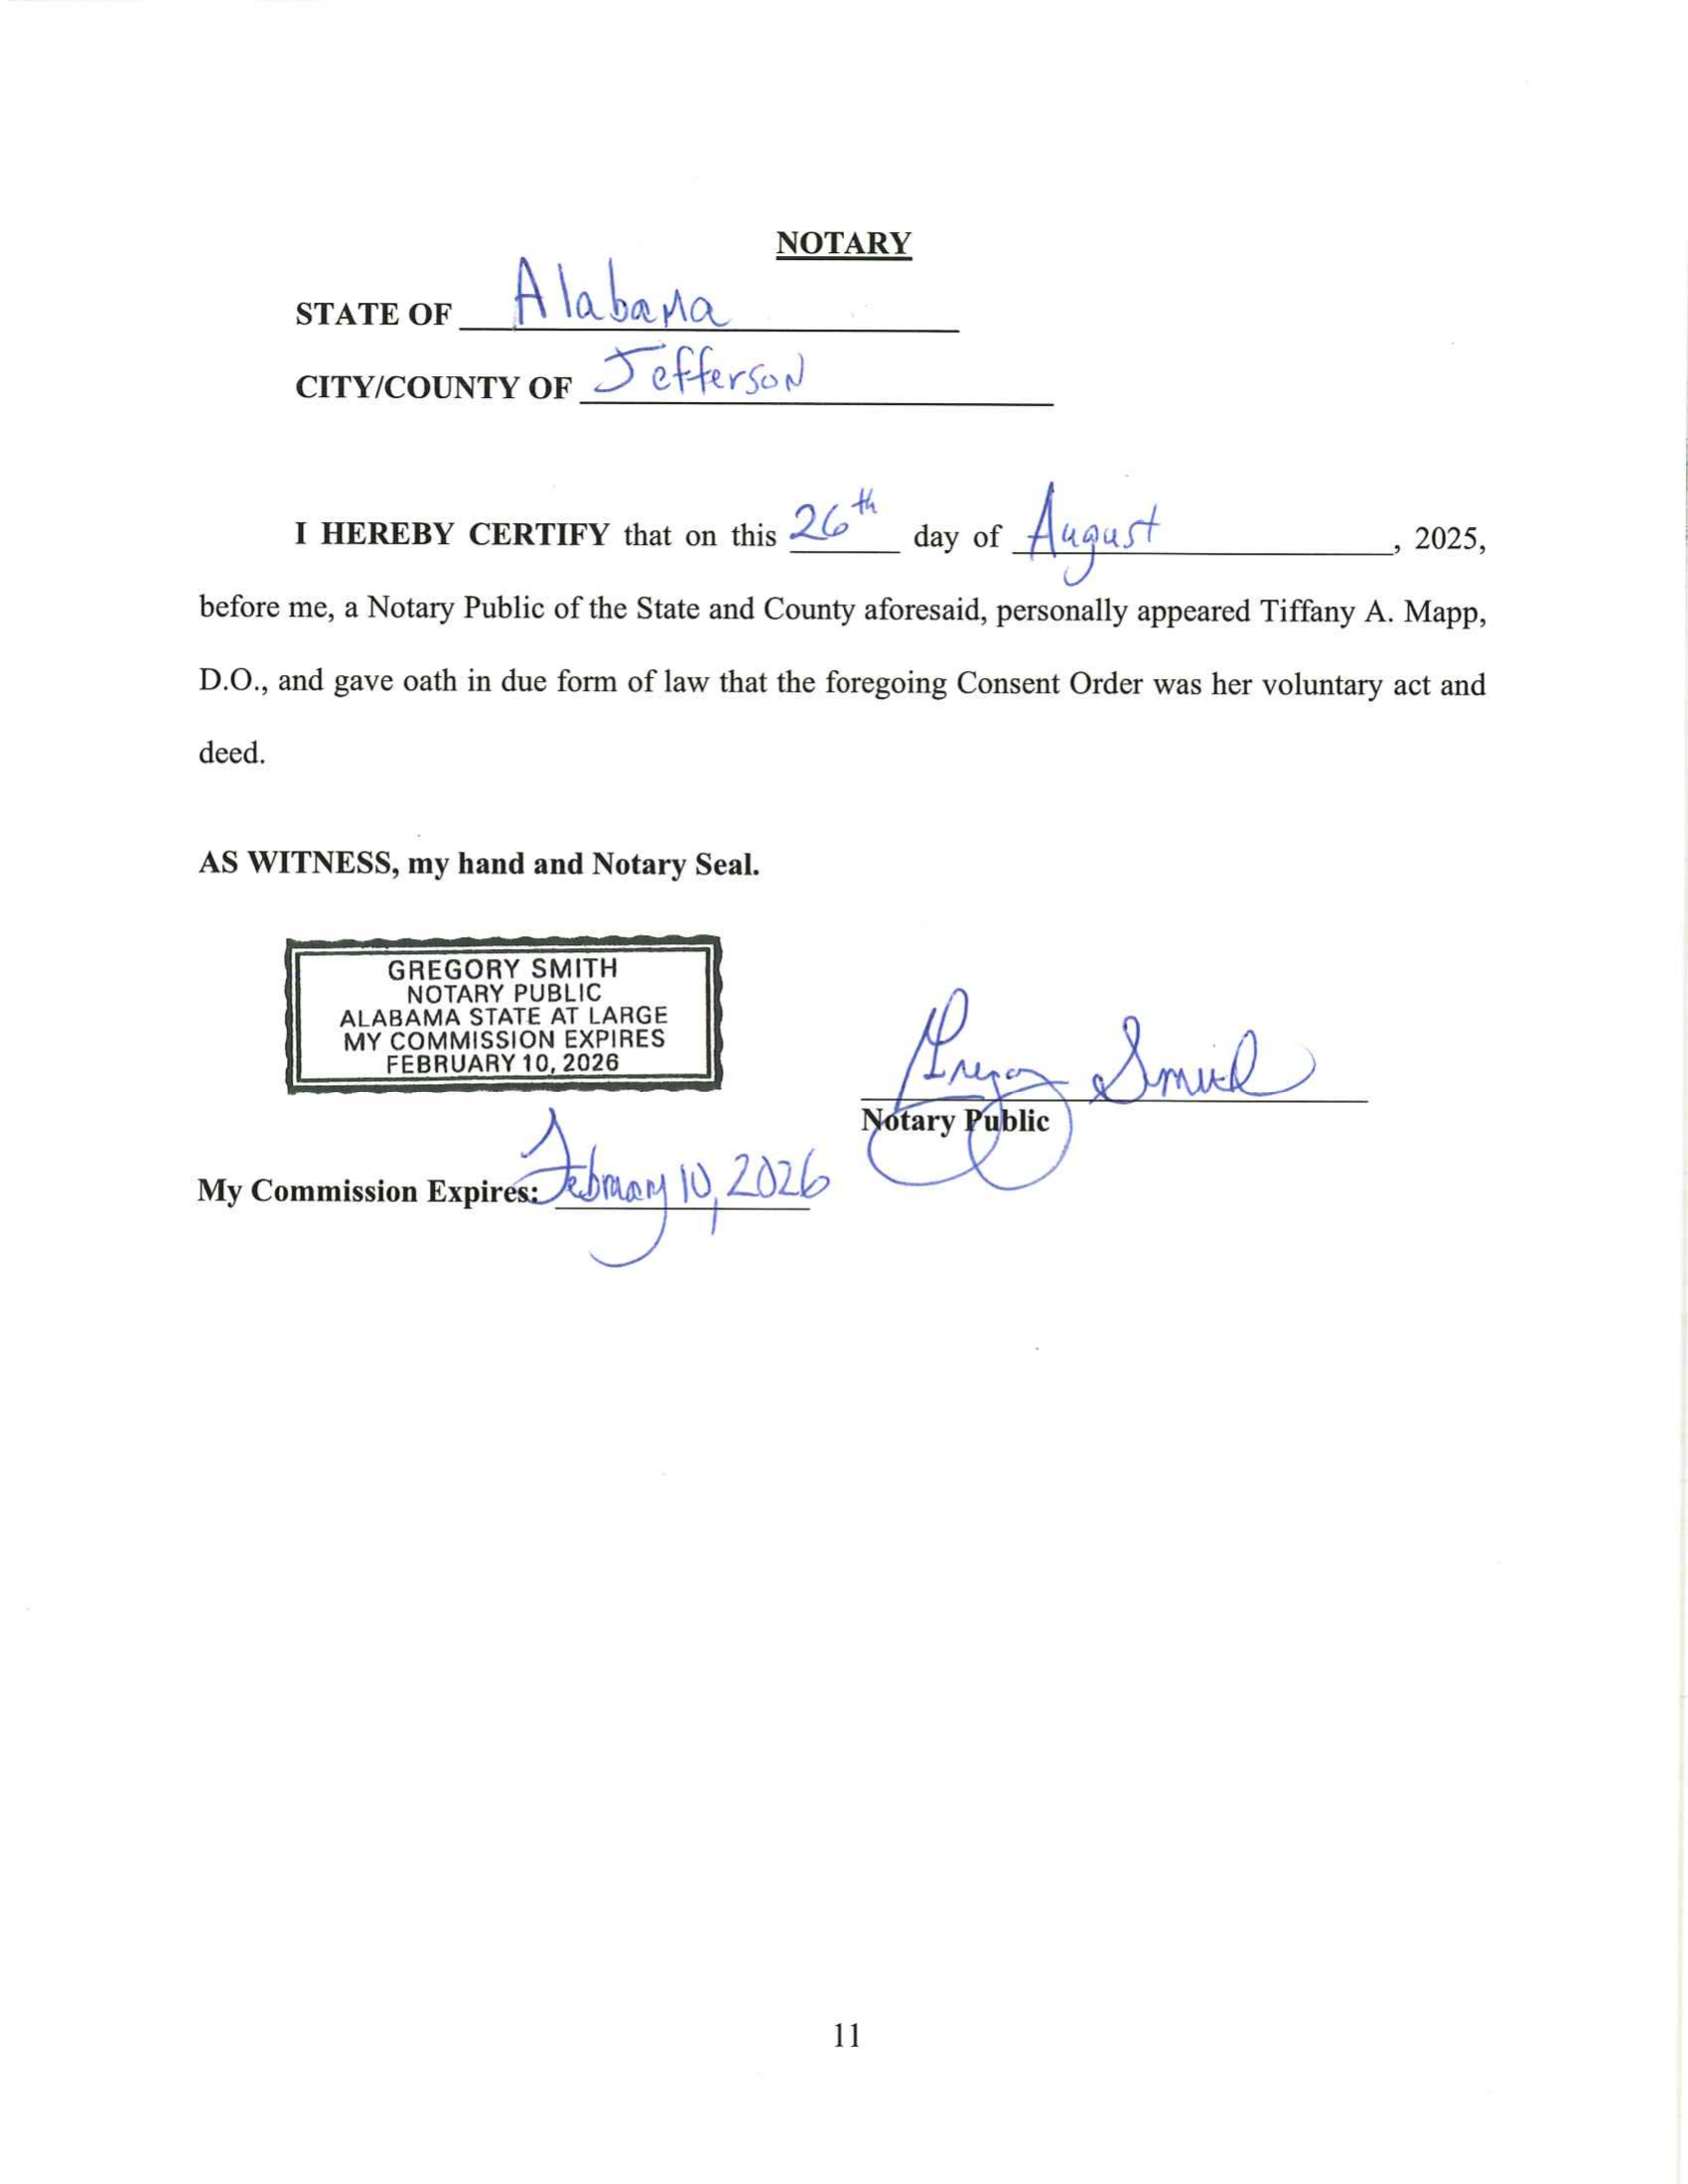 NOTARY
STATE OF Alabama
CITY/COUNTY OF Jefferson
I HEREBY CERTIFY that on this 26th day of August, 2025,
before me, a Notary Public of the State and County aforesaid, personally appeared Tiffany A. Mapp,
D.O., and gave oath in due form of law that the foregoing Consent Order was her voluntary act and
deed.
AS WITNESS, my hand and Notary Seal.
GREGORY SMITH
NOTARY PUBLIC
ALABAMA STATE AT LARGE
MY COMMISSION EXPIRES
FEBRUARY 10, 2026
Gregory Smith
Notary Public
My Commission Expires: February 10, 2026
11